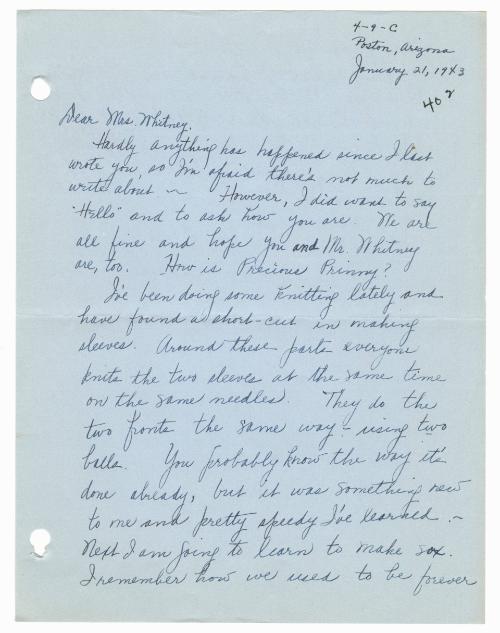 4-9-C
Poston, Arizona
January 21, 1943
402
Dear Mrs. Whitney,
Hardly anything has happened since I last
wrote you, so I'm afraid there's not much to
write about ~ However, I did want to say
"Hello" and to ask how you are. We are
all fine and hope you and Mr. Whitney
are, too. How is Precious Prinny?
I've been doing some knitting lately and
have found a short-cut in making
sleeves. Around these parts everyone
knits the two sleeves at the same time
on the same needles. They do the
two fronts the same way - using two
balls. You probably know the way it's
done already, but it was something new
to me and pretty speedy I've learned. ~
Next I am going to learn to make sox.
I remember how we used to be forever